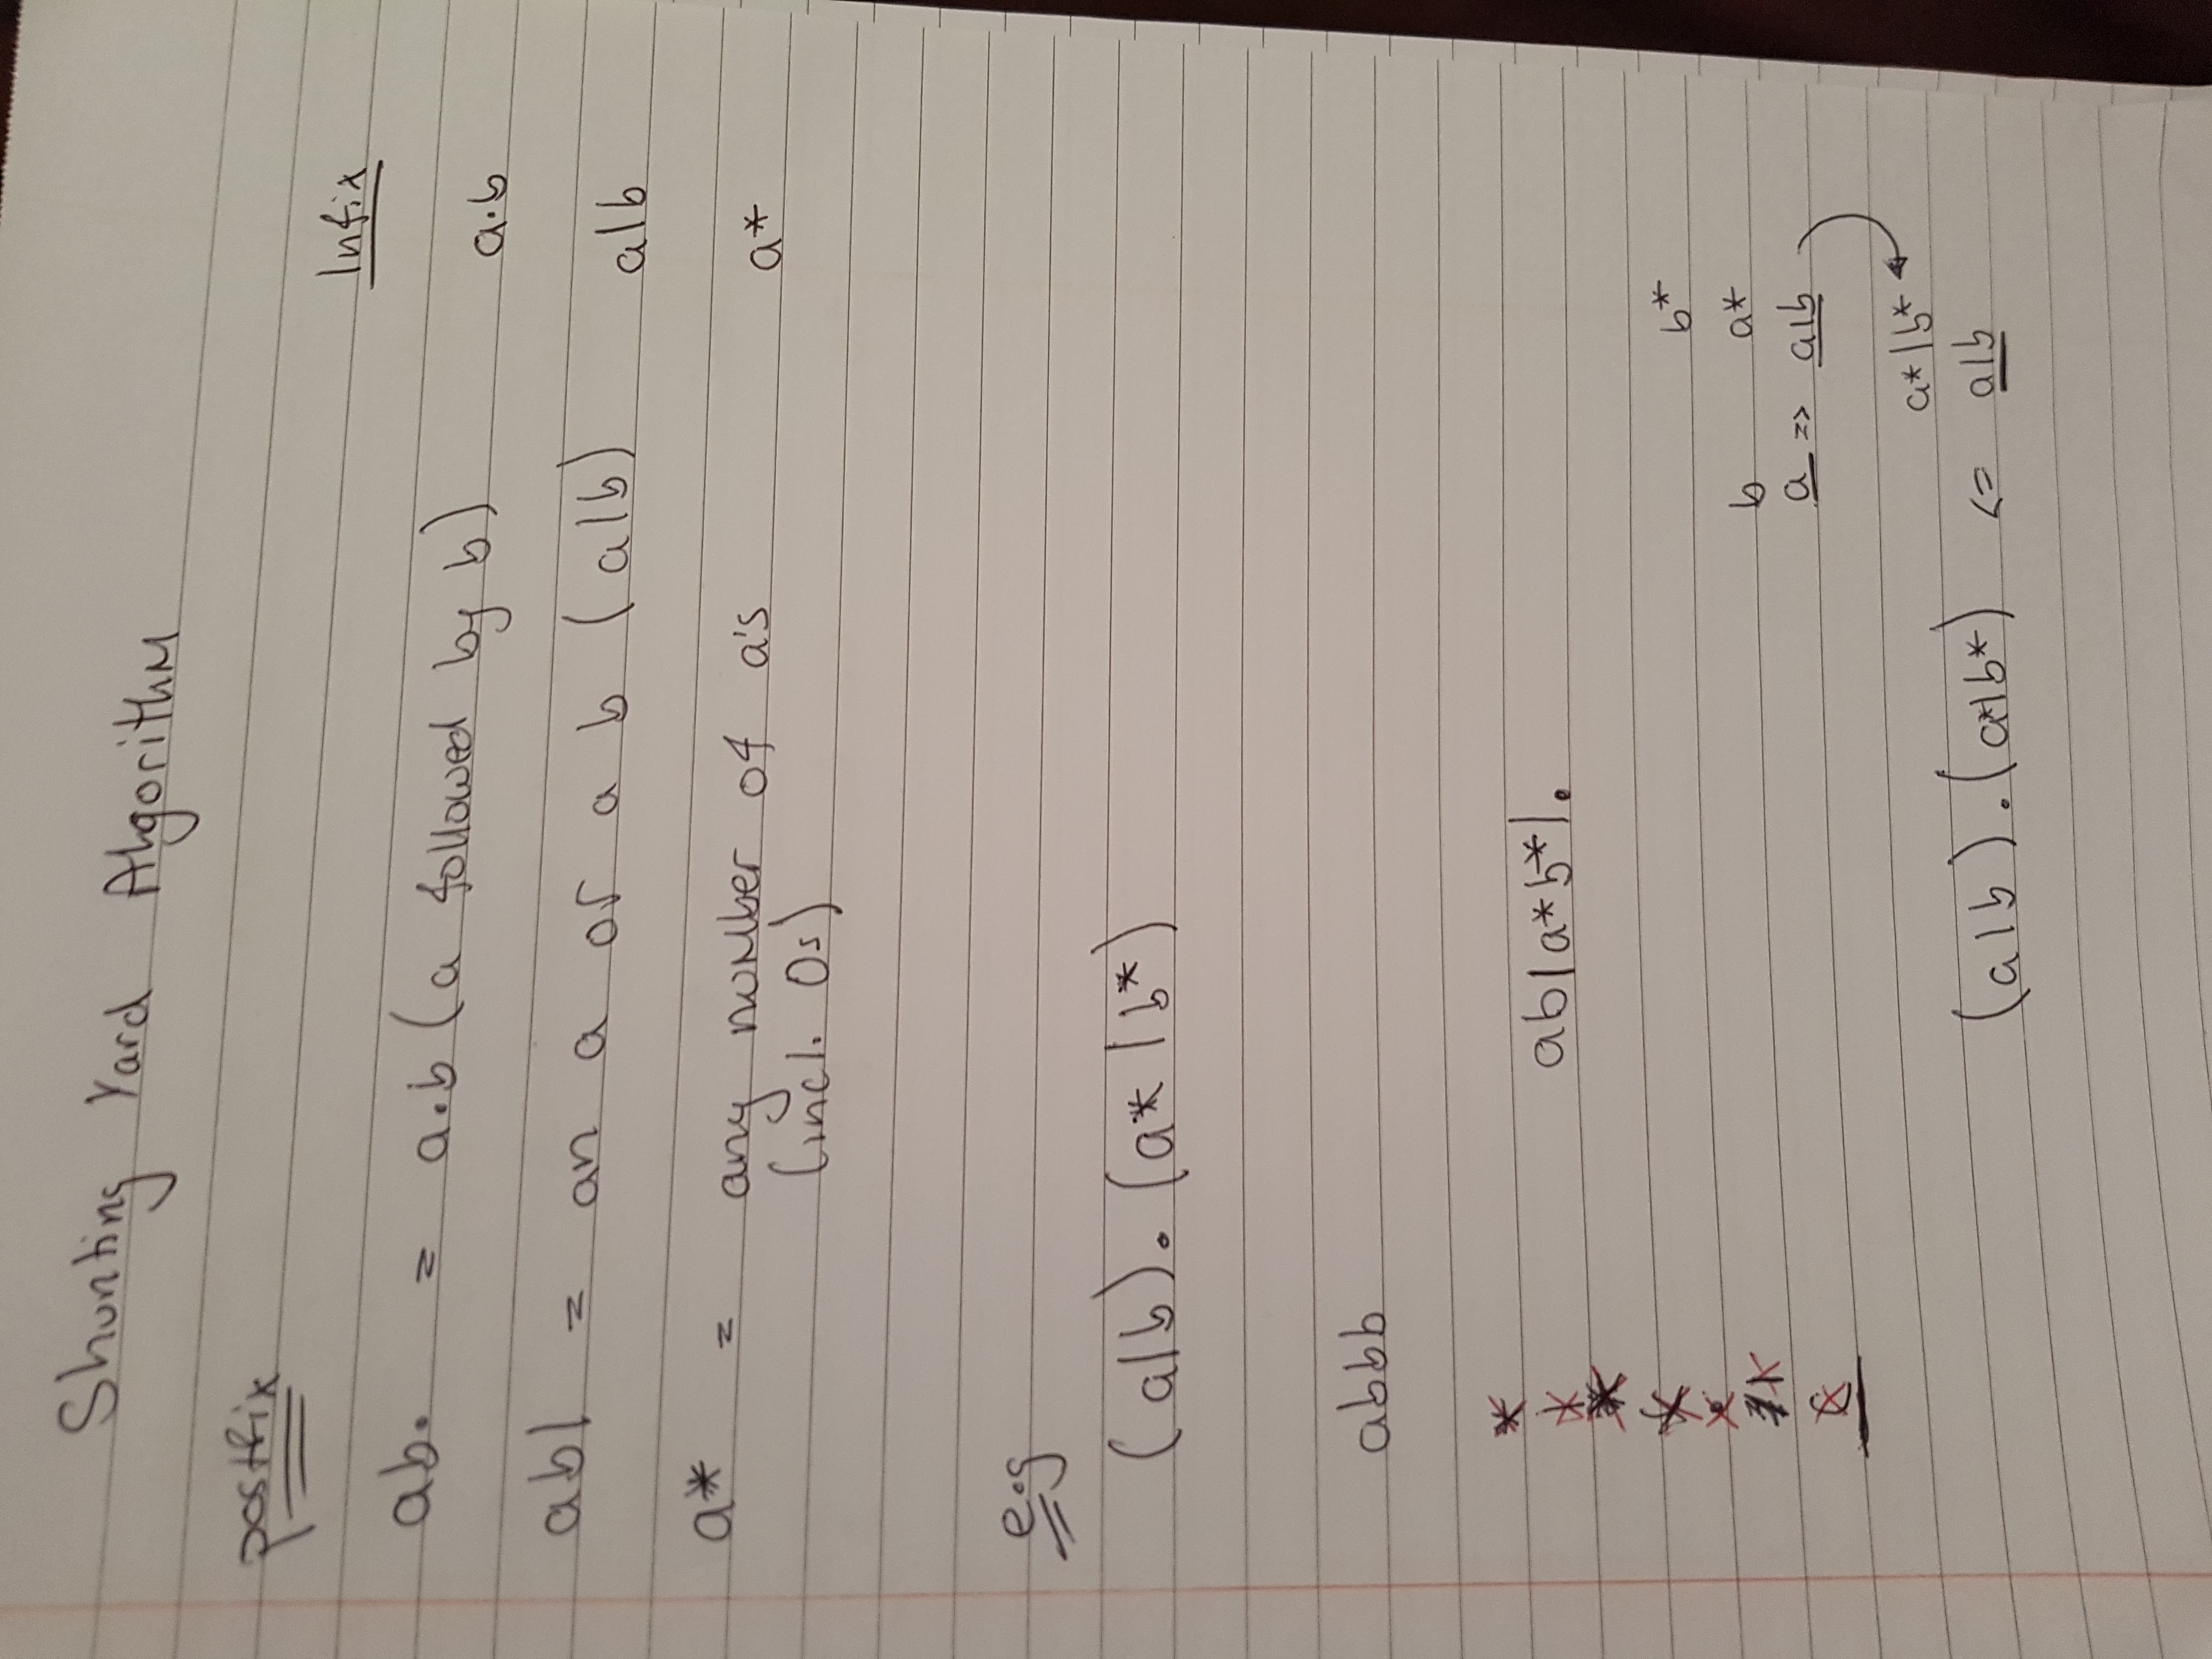 Shunting Yard Algorithm
postfix
Infix
ab. = a.b (a followed by b) a.b
ab| = an a or a b (a|b) a|b
a* = any number of a's a*
(incl. 0s)
e.g
(a|b).(a*|b*)
abbb
*
ab|a*b*|.
b*
b a*
a => a|b
a*|b*
(a|b).(a*|b*) <= a|b